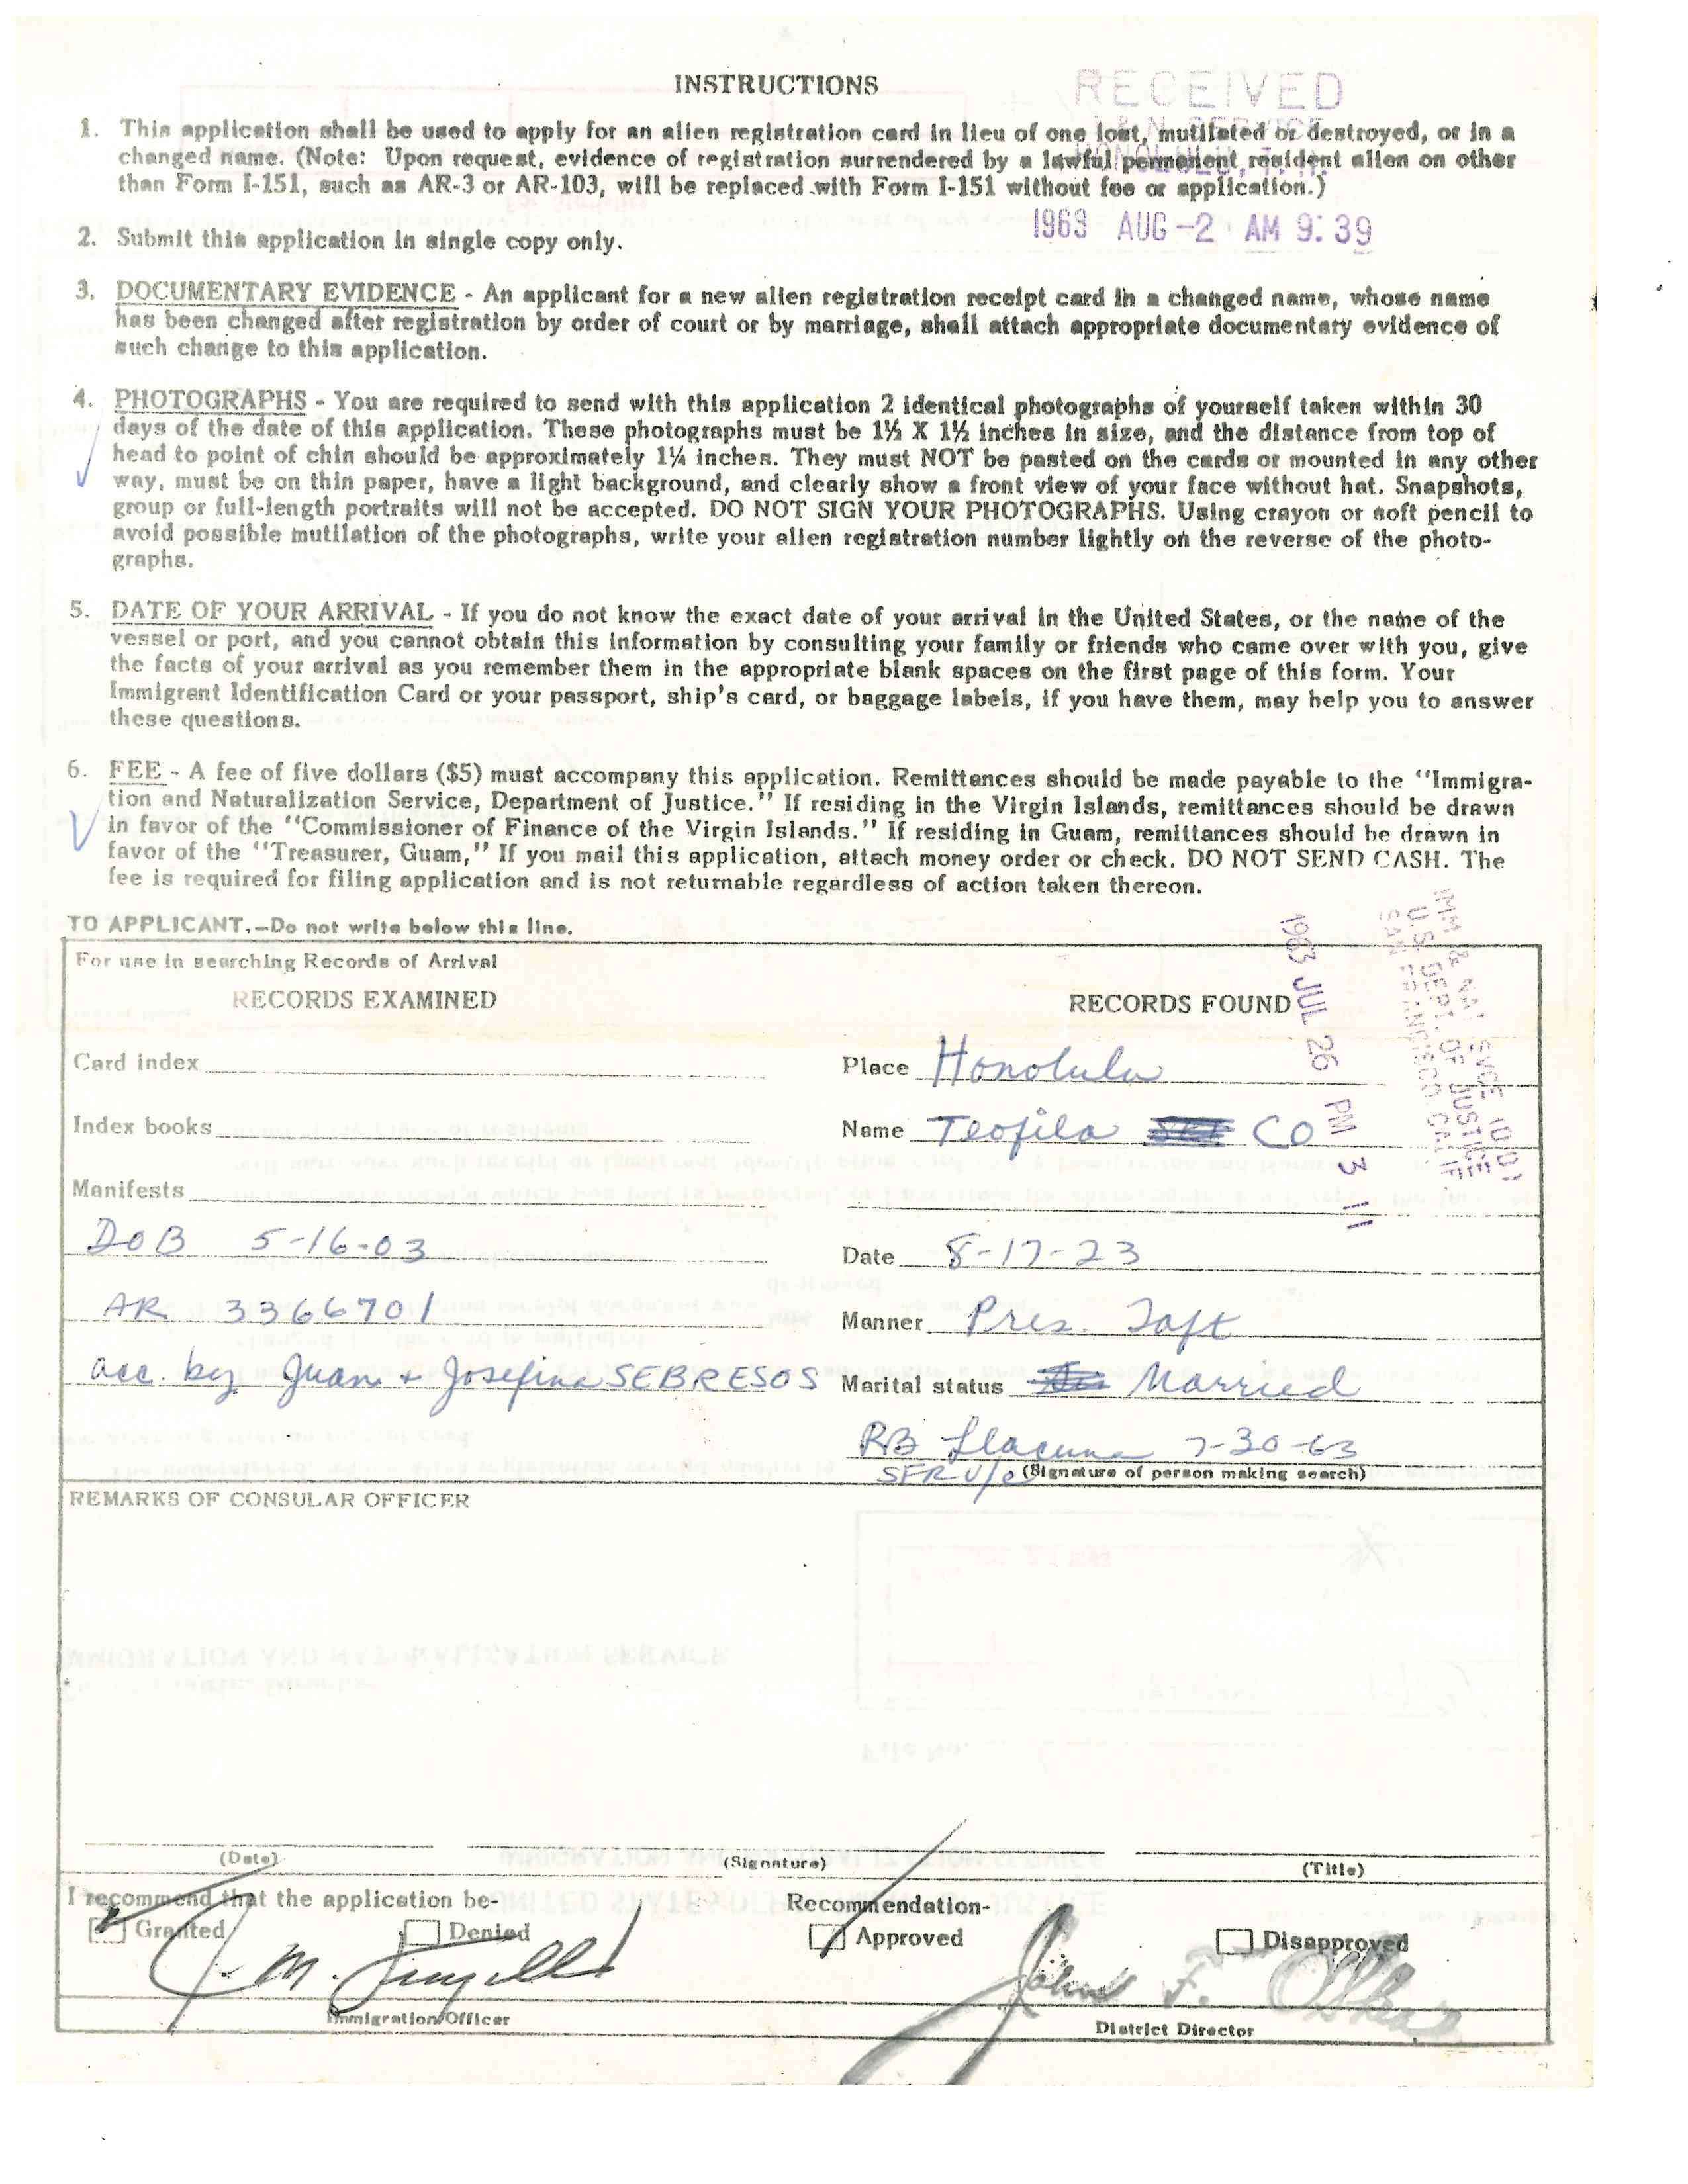 INSTRUCTIONS
RECEIVED
1. This application shall be used to apply for an alien registration card in lieu of one lost, mutilated or destroyed, or in a
changed name. (Note: Upon request, evidence of registration surrendered by a lawful permanent resident alien on other
than Form I-151, such as AR-3 or AR-103, will be replaced with Form I-151 without fee or application.)
1963 AUG -2 AM 9:39
2. Submit this application in single copy only.
3. DOCUMENTARY EVIDENCE - An applicant for a new alien registration receipt card in a changed name, whose name
has been changed after registration by order of court or by marriage, shall attach appropriate documentary evidence of
such change to this application.
4. PHOTOGRAPHS - You are required to send with this application 2 identical photographs of yourself taken within 30
days of the date of this application. These photographs must be 1½ X 1½ inches in size, and the distance from top of
head to point of chin should be approximately 1¼ inches. They must NOT be pasted on the cards or mounted in any other
way, must be on thin paper, have a light background, and clearly show a front view of your face without hat. Snapshots,
group or full-length portraits will not be accepted. DO NOT SIGN YOUR PHOTOGRAPHS. Using crayon or soft pencil to
avoid possible mutilation of the photographs, write your alien registration number lightly on the reverse of the photo-
graphs.
5. DATE OF YOUR ARRIVAL - If you do not know the exact date of your arrival in the United States, or the name of the
vessel or port, and you cannot obtain this information by consulting your family or friends who came over with you, give
the facts of your arrival as you remember them in the appropriate blank spaces on the first page of this form. Your
Immigrant Identification Card or your passport, ship's card, or baggage labels, if you have them, may help you to answer
these questions.
6. FEE - A fee of five dollars ($5) must accompany this application. Remittances should be made payable to the "Immigra-
tion and Naturalization Service, Department of Justice." If residing in the Virgin Islands, remittances should be drawn
in favor of the "Commissioner of Finance of the Virgin Islands." If residing in Guam, remittances should be drawn in
favor of the "Treasurer, Guam," If you mail this application, attach money order or check. DO NOT SEND CASH. The
fee is required for filing application and is not returnable regardless of action taken thereon.
TO APPLICANT.—Do not write below this line.
IMM & NAT SVCE
U.S. DEPT. OF JUSTICE
SAN FRANCISCO CALIF.
1963 JUL 26 PM 3 11
For use in searching Records of Arrival
RECORDS EXAMINED RECORDS FOUND
Card index Place Honolulu
Index books Name Teofila CO
Manifests
DOB 5-16-03 Date 8-17-23
AR 3366701 Manner Pres. Taft
acc. by Juan + Josefina SEBRESOS Marital status Married
RB Llacuna 7-30-63
SFR (Signature of person making search)
REMARKS OF CONSULAR OFFICER
(Date) (Signature) (Title)
I recommend that the application be- Recommendation-
Granted Denied Approved Disapproved
J. M. John F.
Immigration Officer District Director